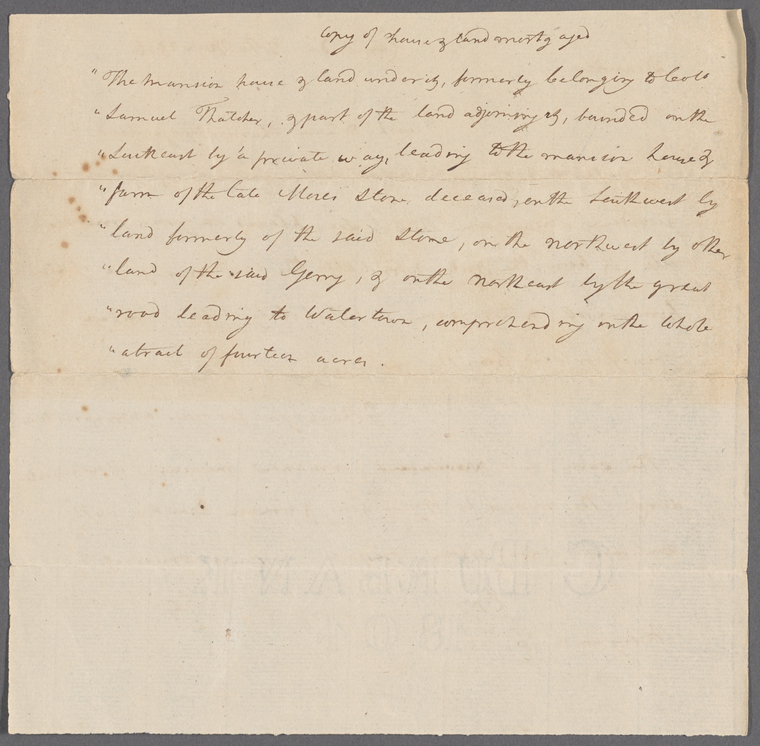 Copy of house & land mortgaged
"The mansion house & land under it, formerly belonging to Colo
"Samuel Thatcher, & part of the land adjoining it, bounded on the
"Southeast by a private way, leading to the mansion house &
"farm of the late Moses Stone, deceased, on the Southwest by
"land formerly of the said Stone, on the northwest by other
"land of the said Gerry, & on the northeast by the great
"road leading to Watertown, comprehending on the whole
"a tract of fourteen acres.